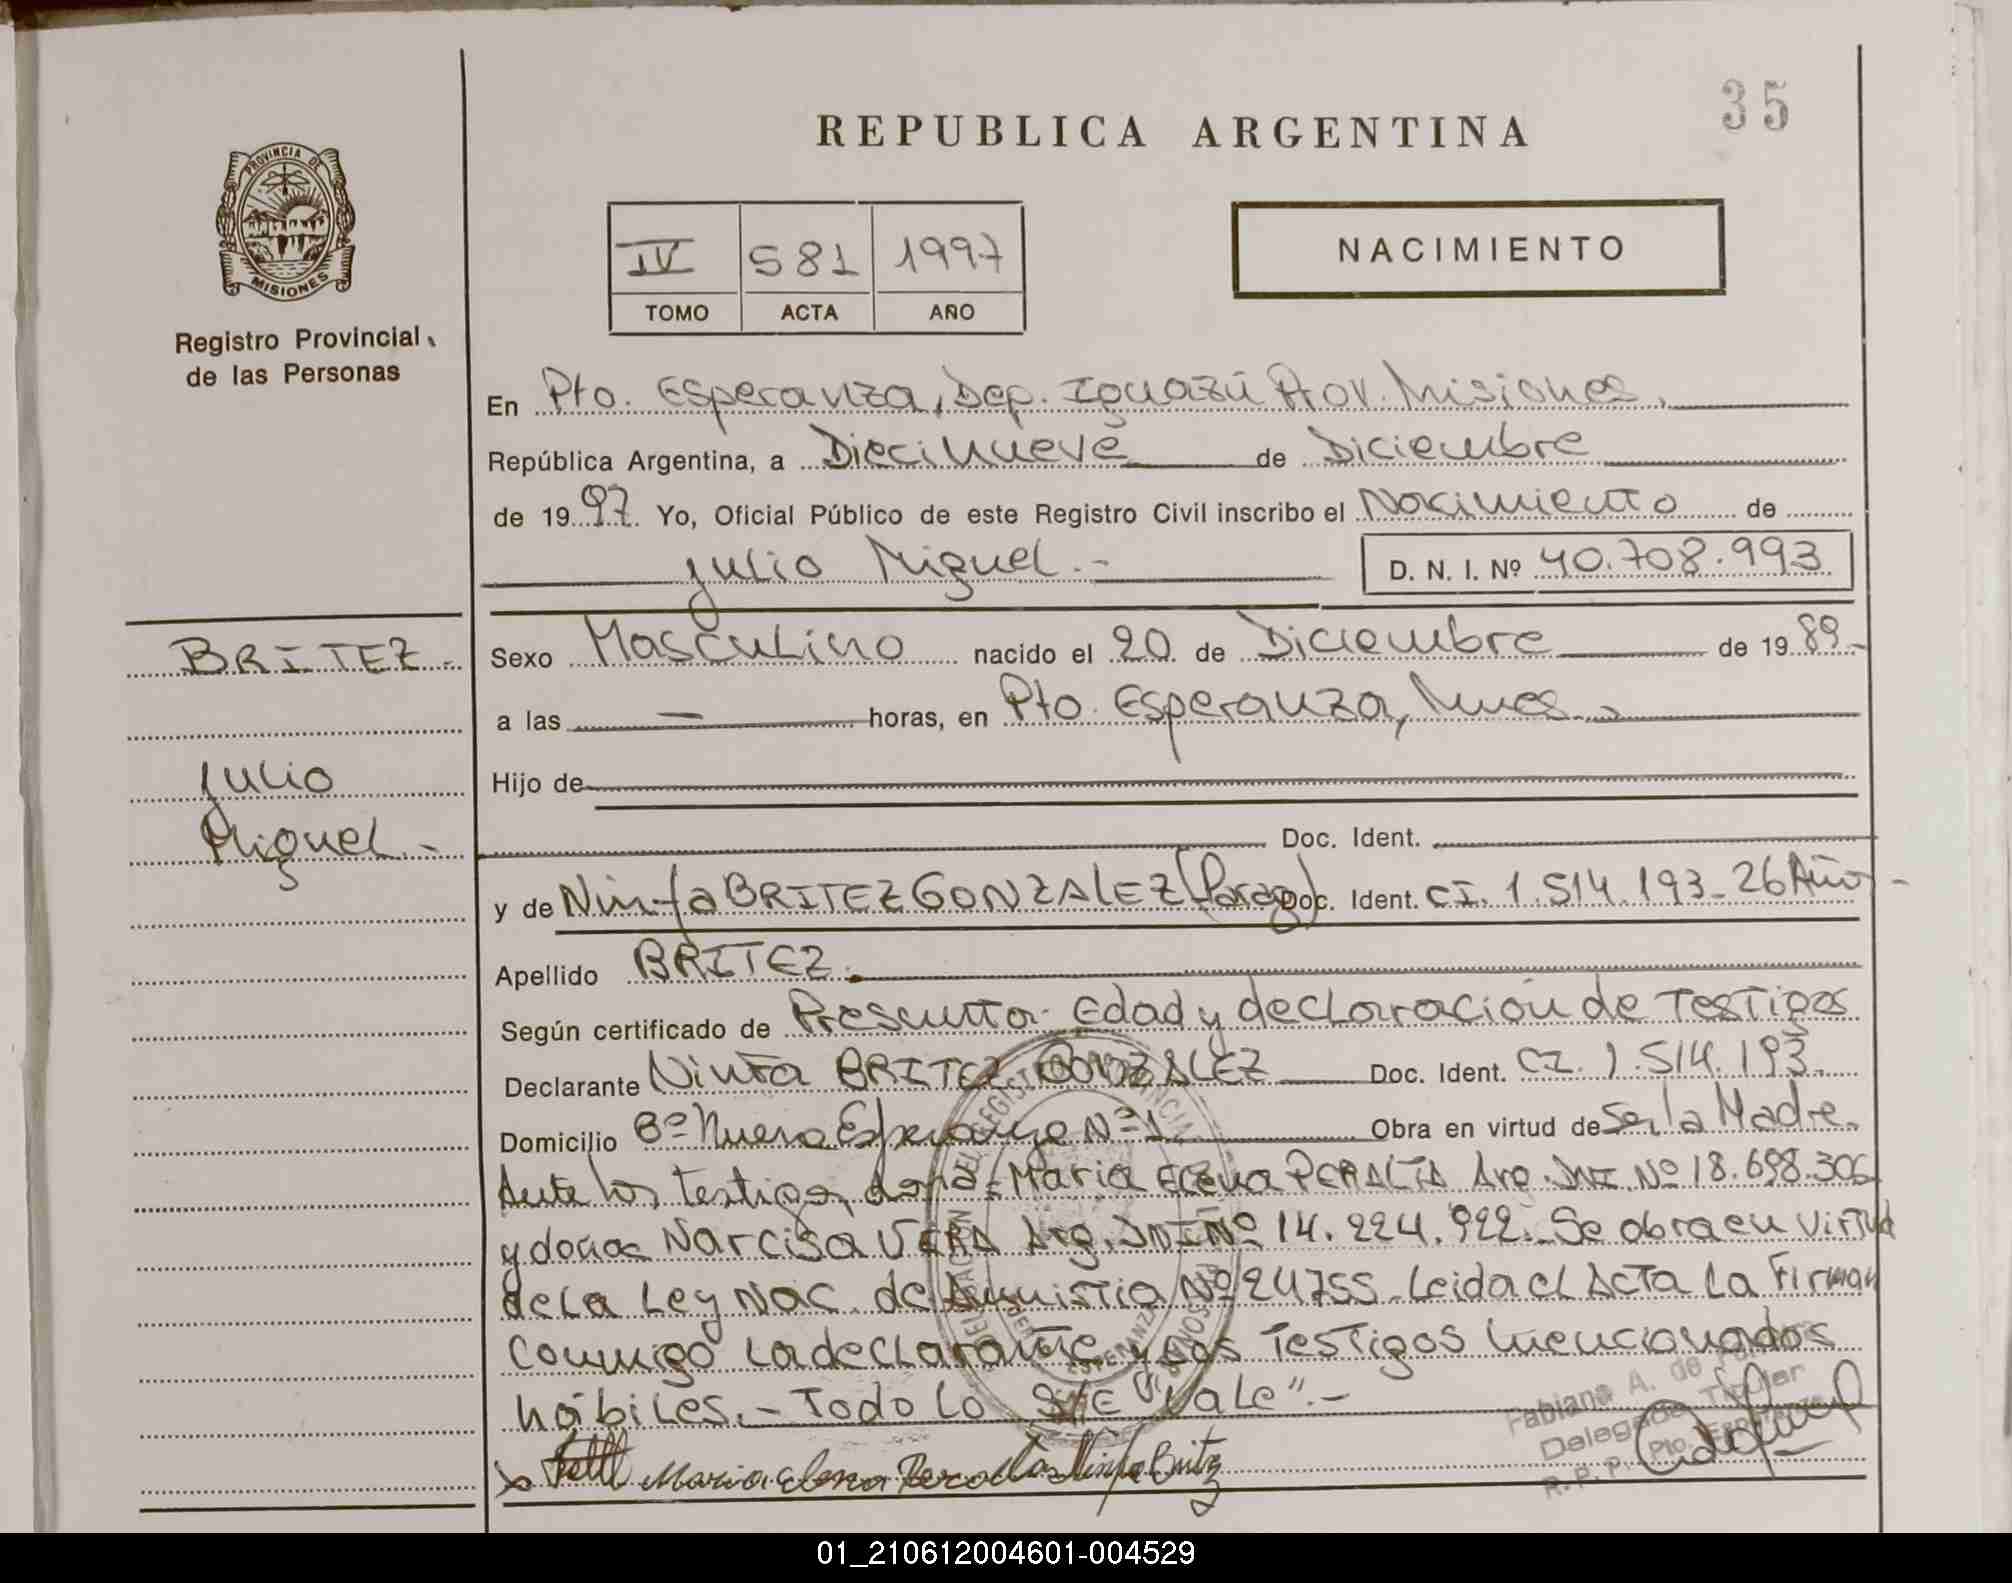 35
REPUBLICA ARGENTINA
PROVINCIA DE
MISIONES
IV 581 1997
TOMO ACTA AÑO
NACIMIENTO
Registro Provincial
de las Personas
En Pto. Esperanza, Dep. Iguazú Prov. Misiones.
República Argentina, a Diecinueve de Diciembre
de 1997. Yo, Oficial Público de este Registro Civil inscribo el Nacimiento de
Julio Miguel.-
D. N. I. Nº 40.708.993
BRITEZ.-
Julio
Miguel.-
Sexo Masculino nacido el 20 de Diciembre de 1989.-
a las — horas, en Pto. Esperanza, Mnes.-
Hijo de
Doc. Ident.
y de Ninfa BRITEZ GONZALEZ (Parag) Doc. Ident. CI. 1.514.193-26 Año-
Apellido BRITEZ.
Según certificado de Presunta Edad y declaración de Testigos
Declarante Ninfa BRITEZ GONZALEZ Doc. Ident. CI. 1.514.193.
Domicilio Bº Nueva Esperanza Nº 1. Obra en virtud de Ser la Madre.
Ante los testigos, doña Maria Elena PERALTA Arg. DNI Nº 18.698.306
y doña Narcisa VERA Arg. DNI Nº 14.224.922. Se obra en virtud
de la Ley Nac. de Amnistia Nº 24755. Leida el Acta la Firman
conmigo la declarante y los Testigos mencionados
hábiles.- Todo lo S/E "Vale".-
Maria Elena Peralta Ninfa Britez
Fabiana A. de
Delegada Titular
R. P. P. Pto. Esperanza
01_210612004601-004529